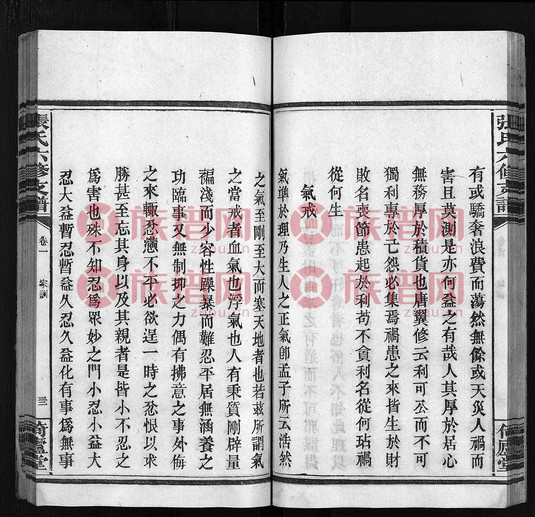 張氏六修支譜
有或驕奢浪費而蕩然無餘或天災人禍而
害且莫測是亦何益之有哉人其厚於居心
無務厚於積貨也唐翼修云利可公而不可
獨利專於己怨必集焉禍患之來皆生於財
敗名喪節悉起於利苟不貪利名從何玷禍
從何生
氣戒
氣準於理乃生人之正氣卽孟子所云浩然
之氣至剛至大而塞天地者也若茲所謂氣
之當戒者血氣也浮氣也人有秉質剛辟量
褊淺而少容性躁暴而難忍平居無涵養之
功臨事又無制抑之力偶有拂意之事外侮
之來輒忿懣不平必欲逞一時之忿恨以求
勝甚至忘其身以及其親者是皆小不忍之
爲害也殊不知忍爲眾妙之門小忍小益大
忍大益暫忍暫益久忍久益化有事爲無事
張氏六修支譜
卷一
家訓
三
荷廬堂
族譜网
zupu.cn